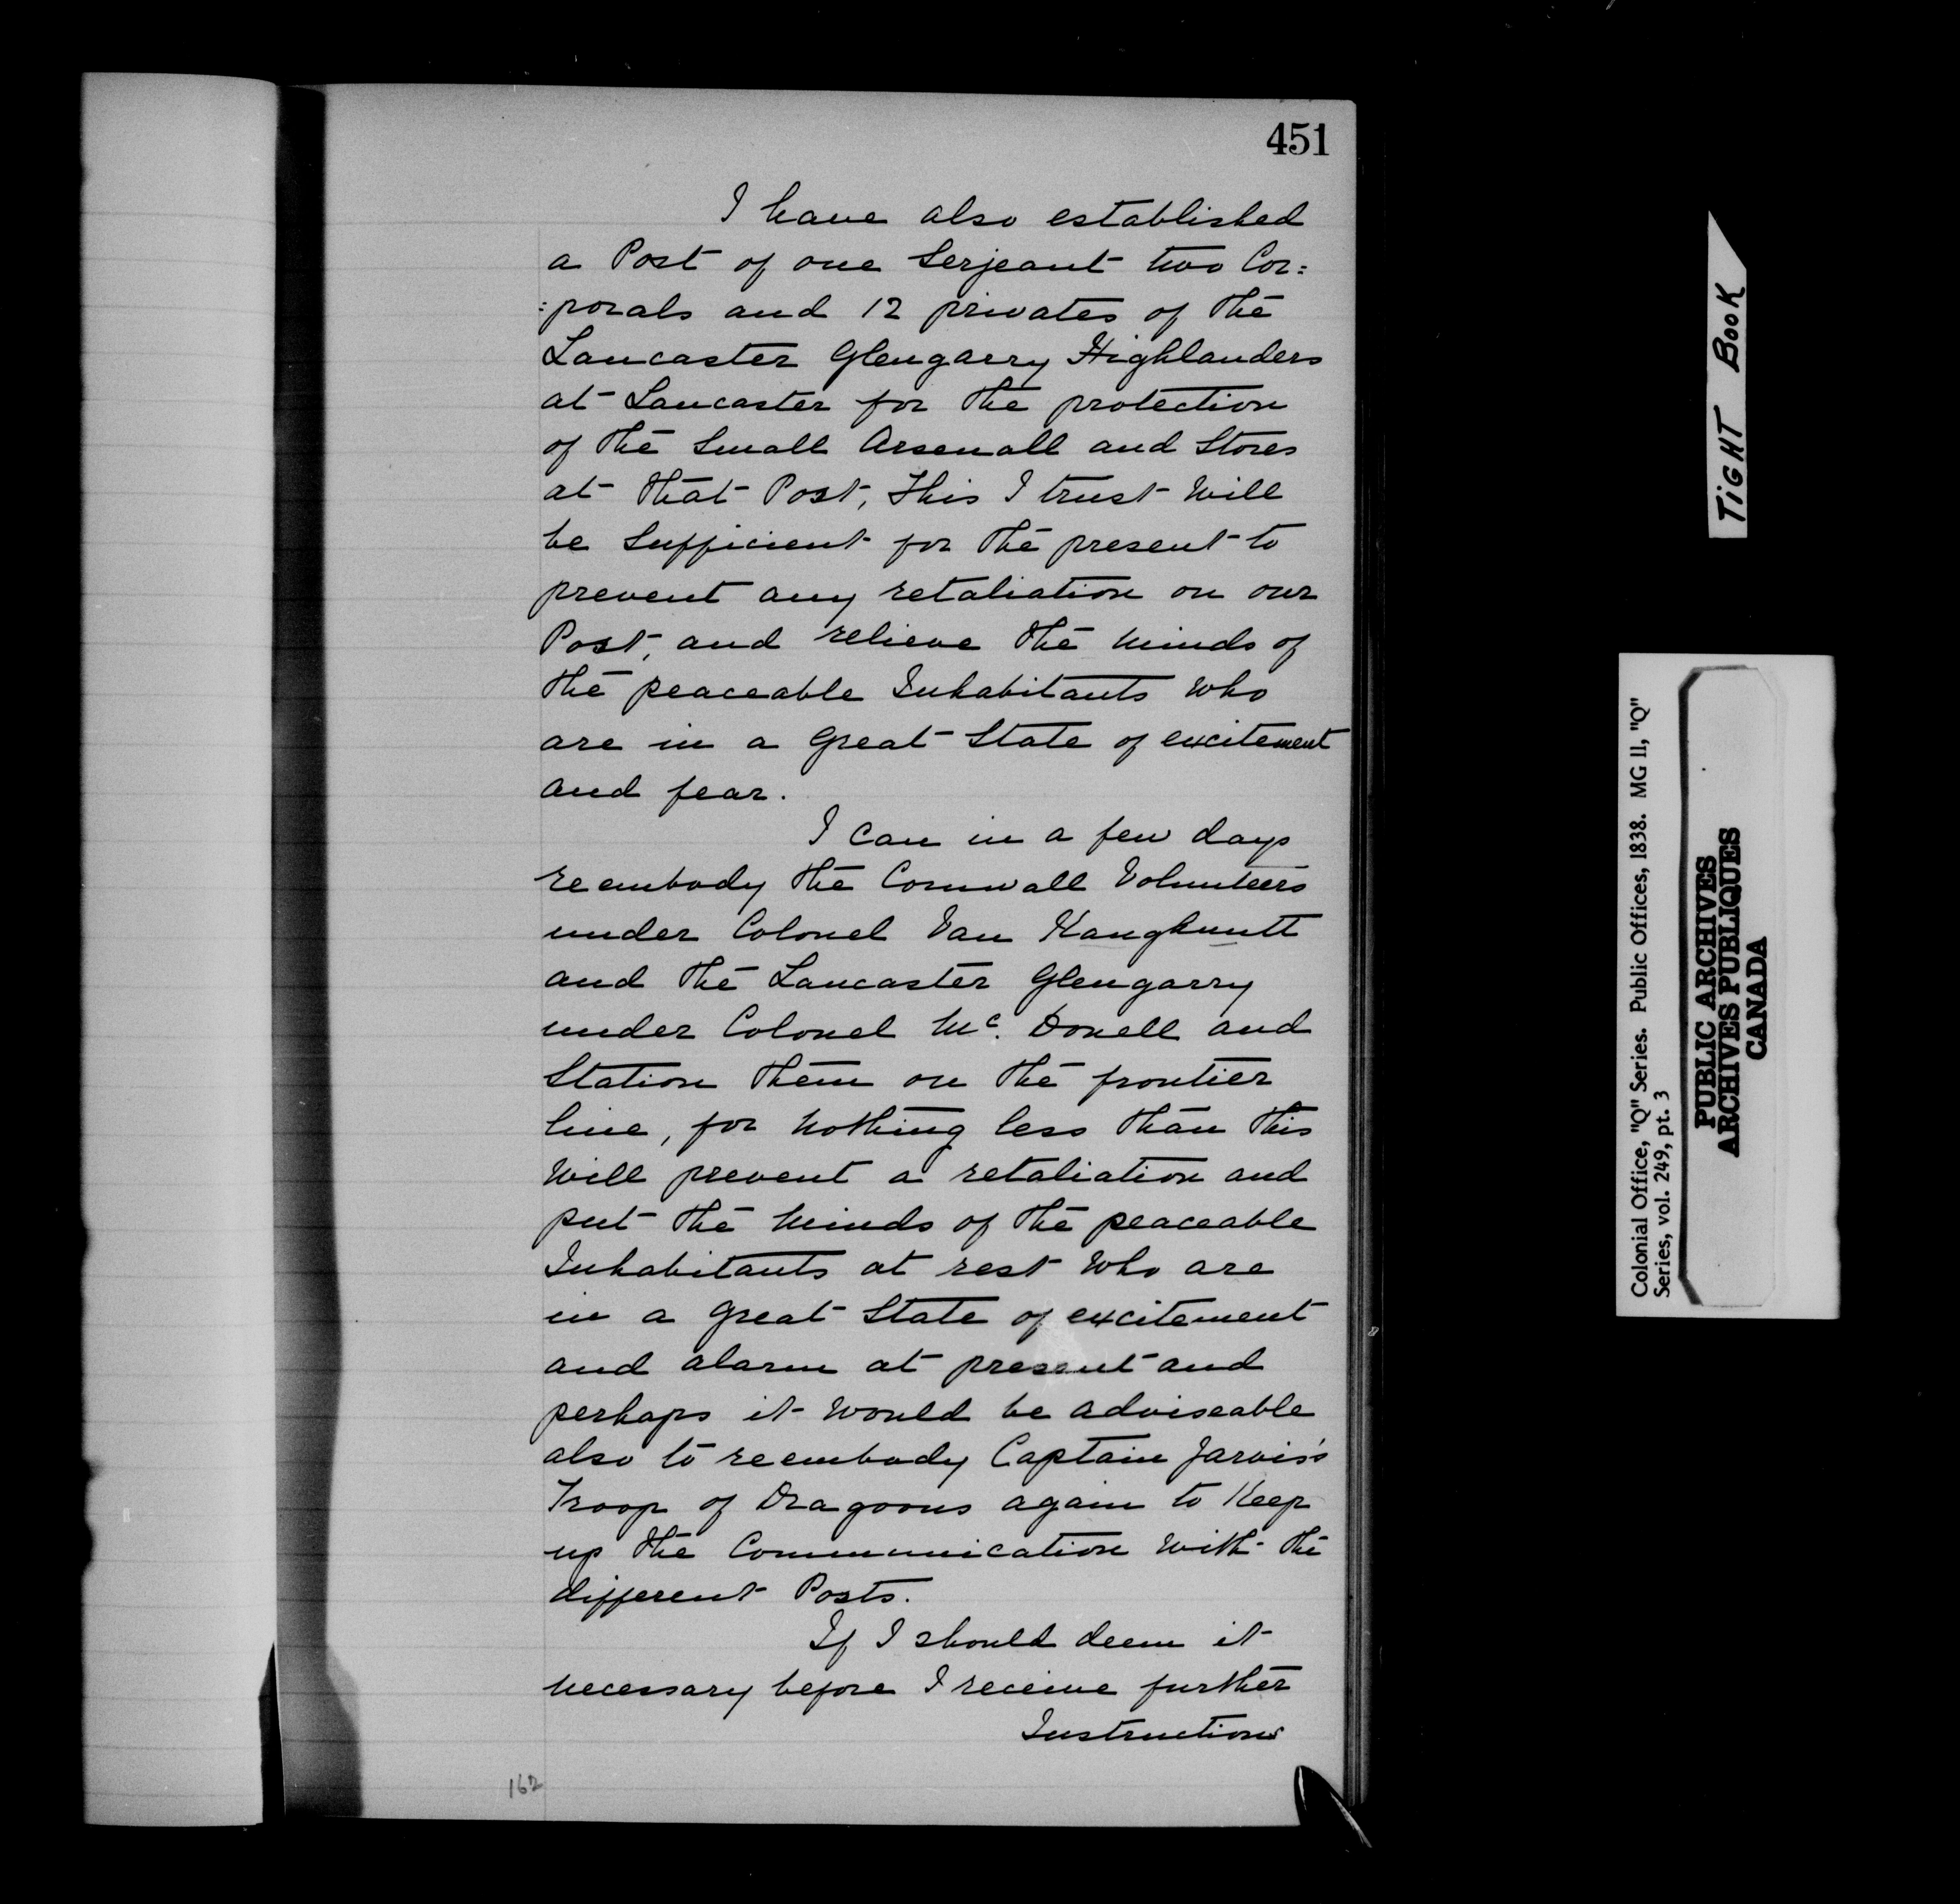 451
I have also established
a Post of one Serjeant two Cor:
:porals and 12 privates of the
Lancaster Glengarry Highlanders
at Lancaster for the protection
of the Small Arsenall and Stores
at that Post, This I trust Will
be Sufficient for the present to
prevent any retaliation on our
Post, and relieve the Minds of
the peaceable Inhabitants Who
are in a Great State of excitement
and fear.
I Can in a few days
reembody the Cornwall Volunteers
under Colonel Van Kaughnutt
and the Lancaster Glengarry
under Colonel Mc. Donell and
Station them on the frontier
line, for Nothing less than this
Will prevent a retaliation and
put the Minds of the peaceable
Inhabitants at rest Who are
in a Great State of excitement
and alarm at present and
perhaps it Would be adviseable
also to reembody Captain Jarvis's
Troop of Dragoons again to Keep
up the Communication With the
different Posts.
If I should deem it
Necessary before I receive further
Instructions
162
TIGHT BOOK
Colonial Office, "Q" Series. Public Offices, 1838. MG 11, "Q"
Series, vol. 249, pt. 3
PUBLIC ARCHIVES
ARCHIVES PUBLIQUES
CANADA